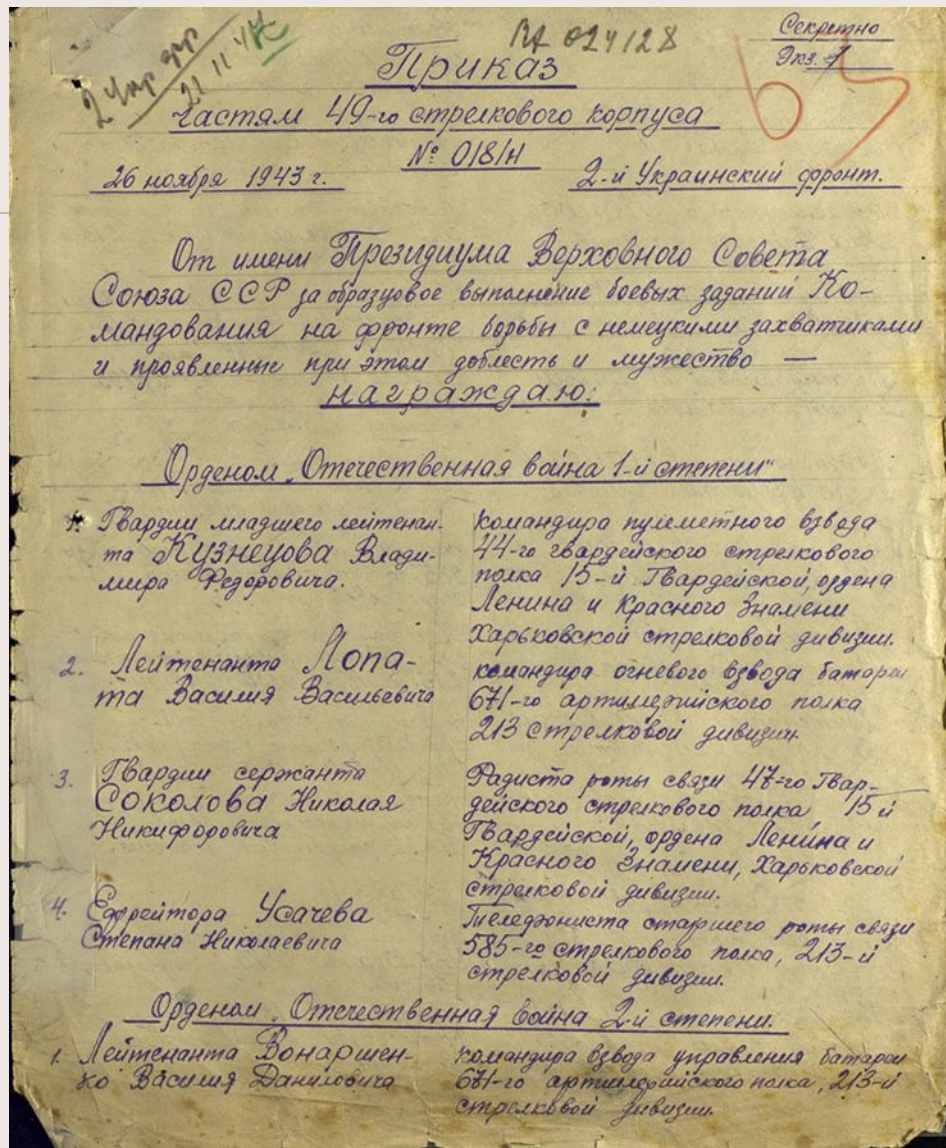 Секретно
Экз. 1
ВД 024128
21 11 47
65
Приказ
частям 49-го стрелкового корпуса
№ 018/н
26 ноября 1943 г.
2-й Украинский фронт.
От имени Президиума Верховного Совета
Союза ССР за образцовое выполнение боевых заданий Ко-
мандования на фронте борьбы с немецкими захватчиками
и проявленные при этом доблесть и мужество —
награждаю:
Орденом „Отечественная война 1-й степени"
1. Гвардии младшего лейтенан-
та Кузнецова Влади-
мира Федоровича.
командира пулеметного взвода
44-го гвардейского стрелкового
полка 15-й Гвардейской, ордена
Ленина и Красного Знамени
Харьковской стрелковой дивизии.
2. Лейтенанта Лопа-
та Василия Васильевича
командира огневого взвода батареи
671-го артиллерийского полка
213 стрелковой дивизии.
3. Гвардии сержанта
Соколова Николая
Никифоровича
Радиста роты связи 47-го Гвар-
дейского стрелкового полка 15-й
Гвардейской, ордена Ленина и
Красного Знамени, Харьковской
стрелковой дивизии.
4. Ефрейтора Усачева
Степана Николаевича
Телефониста старшего роты связи
585-го стрелкового полка, 213-й
стрелковой дивизии.
Орденом „Отечественная война 2-й степени.
1. Лейтенанта Вонаршен-
ко Василия Даниловича
командира взвода управления батареи
671-го артиллерийского полка, 213-й
стрелковой дивизии.